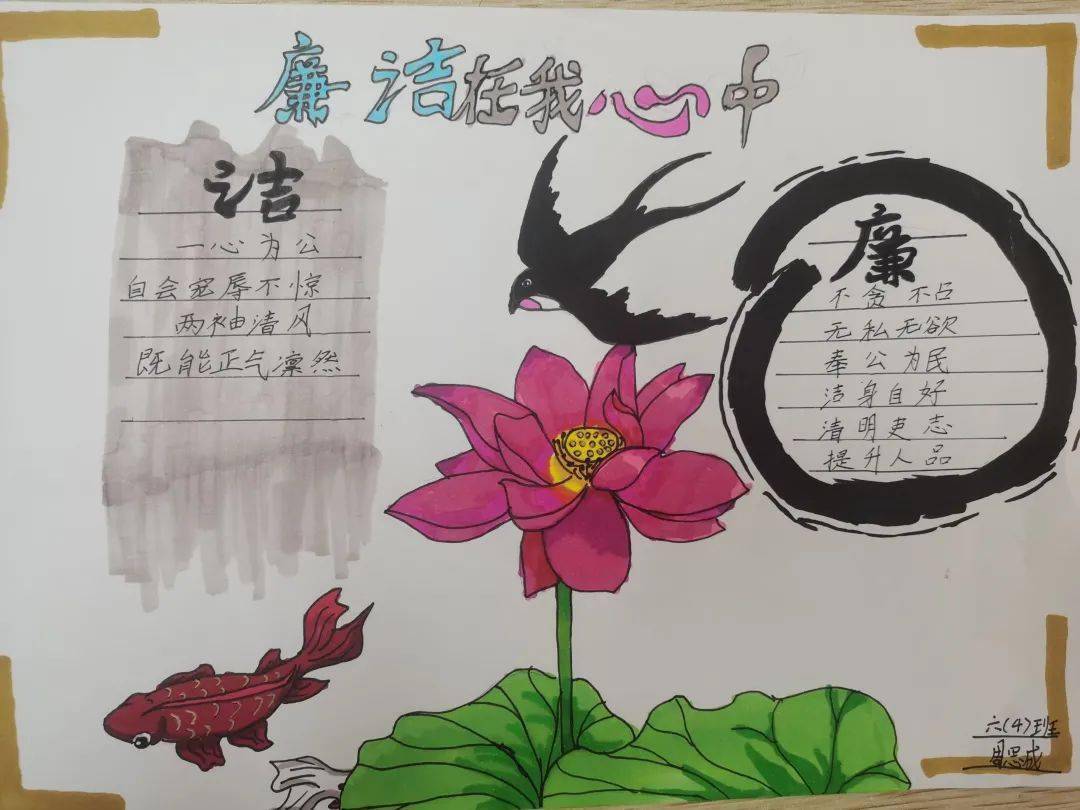 廉洁在我心中
洁
一心为公
自会宠辱不惊
两袖清风
既能正气凛然
廉
不贪不占
无私无欲
奉公为民
洁身自好
清明吏志
提升人品
六(4)班
周思成